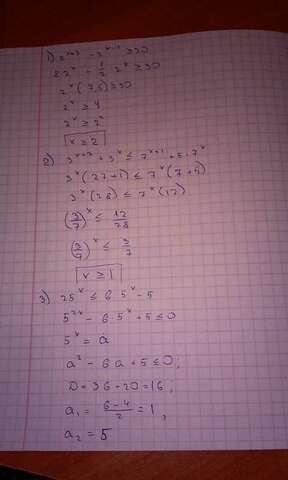 1) 2^{x+3} - 2^{x-1} ≥ 30
8·2^x - 1/2 · 2^x ≥ 30
2^x (7,5) ≥ 30
2^x ≥ 4
2^x ≥ 2^2
x ≥ 2
2) 3^{x+3} + 3^x ≤ 7^{x+1} + 5·7^x
3^x (27+1) ≤ 7^x (7+5)
3^x (28) ≤ 7^x (12)
(3/7)^x ≤ 12/28
(3/7)^x ≤ 3/7
x ≥ 1
3) 25^x ≤ 6·5^x - 5
5^{2x} - 6·5^x + 5 ≤ 0
5^x = a
a^2 - 6a + 5 ≤ 0;
D = 36 - 20 = 16;
a_1 = (6-4)/2 = 1;
a_2 = 5